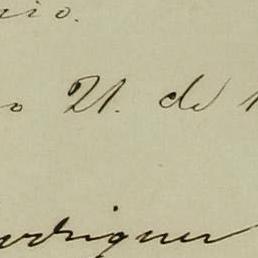 cio.
o 21. de 1
rdriguez